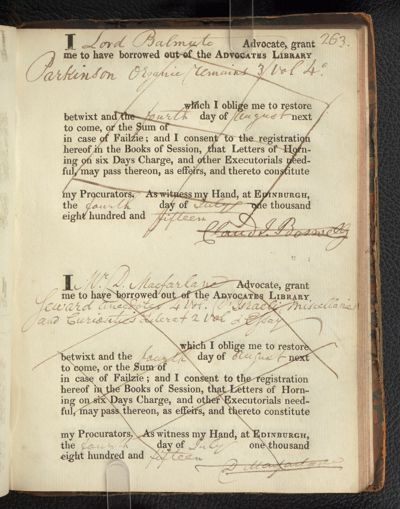 263.
I Lord Balmuto Advocate, grant
me to have borrowed out of the ADVOCATES LIBRARY
Parkinson Organic remains 3 vol 4o
which I oblige me to restore
betwixt and the fourth day of August next
to come, or the Sum of
in case of Failzie; and I consent to the registration
hereof in the Books of Session, that Letters of Horn-
ing on six Days Charge, and other Executorials need-
ful, may pass thereon, as effeirs, and thereto constitute
my Procurators. As witness my Hand, at EDINBURGH,
the fourth day of July one thousand
eight hundred and fifteen
Claud I. Boswell
I Mr. D. Macfarlane Advocate, grant
me to have borrowed out of the ADVOCATES LIBRARY
Seward Anecdotes 4 Vol. D'Israeli Miscellanies
and Curiosities 2 vol
which I oblige me to restore
betwixt and the fourth day of August next
to come, or the Sum of
in case of Failzie; and I consent to the registration
hereof in the Books of Session, that Letters of Horn-
ing on six Days Charge, and other Executorials need-
ful, may pass thereon, as effeirs, and thereto constitute
my Procurators. As witness my Hand, at EDINBURGH,
the fourth day of July one thousand
eight hundred and fifteen
D. Macfarlane